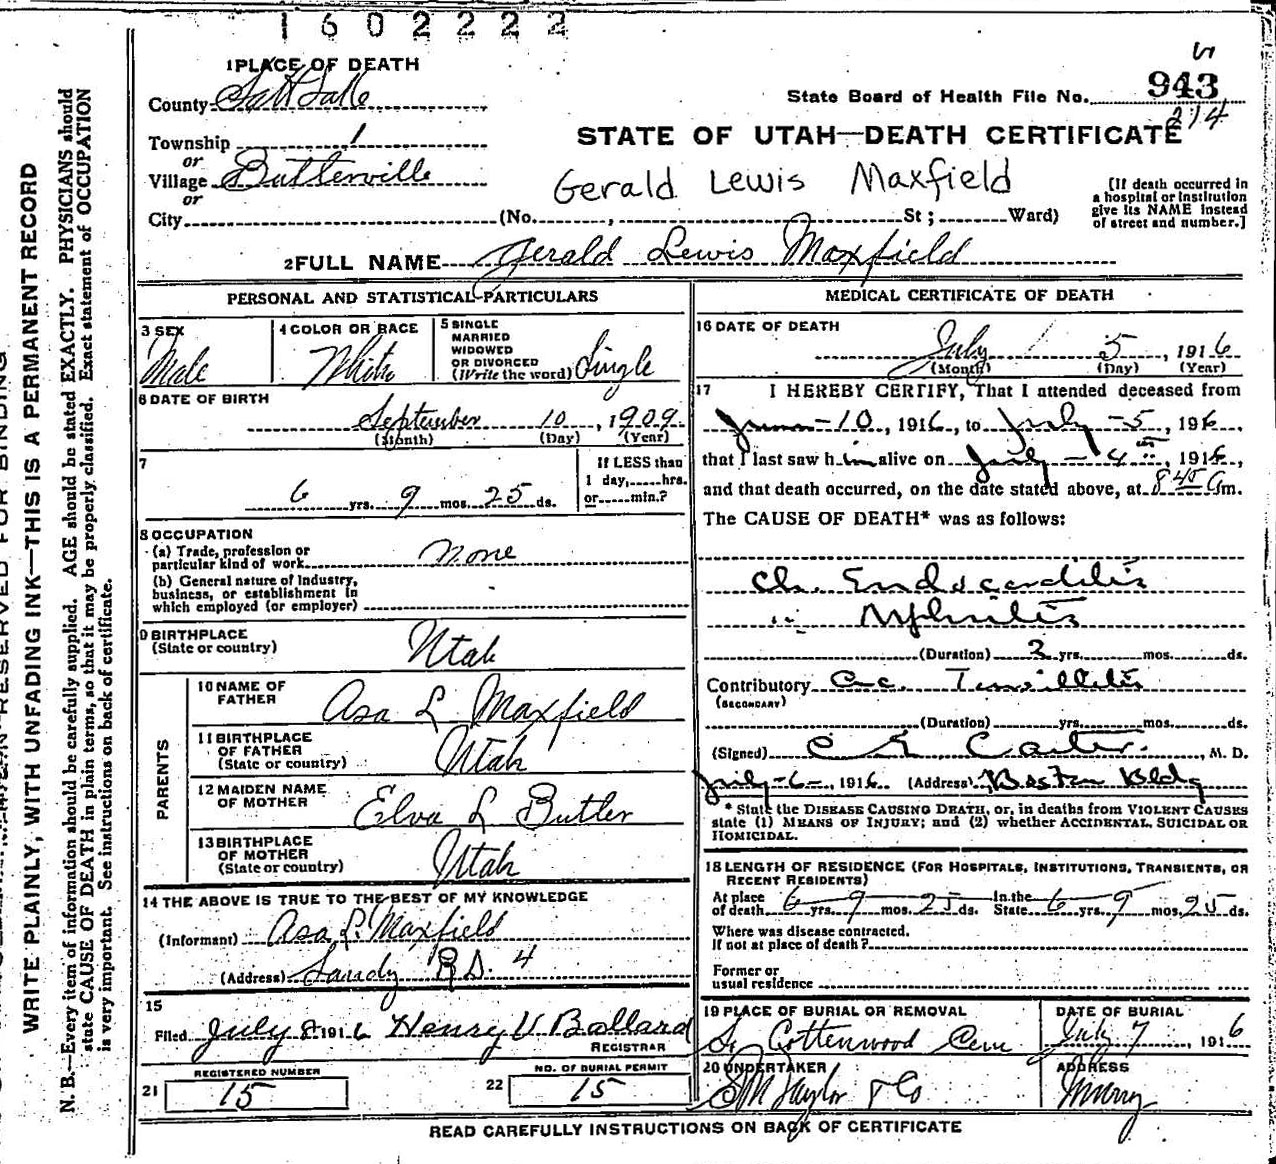 1602222
1 PLACE OF DEATH
County Salt Lake
State Board of Health File No. 943
214
Township 1
STATE OF UTAH—DEATH CERTIFICATE
or
Village Butterville
Gerald Lewis Maxfield
or
City (No. , St ; Ward)
[If death occurred in
a hospital or institution
give its NAME instead
of street and number.]
2 FULL NAME Gerald Lewis Maxfield
PERSONAL AND STATISTICAL PARTICULARS
3 SEX
Male
4 COLOR OR RACE
White
5 SINGLE
MARRIED
WIDOWED
OR DIVORCED
(Write the word) Single
6 DATE OF BIRTH
September 10, 1909
(Month) (Day) (Year)
7
6 yrs. 9 mos. 25 ds.
If LESS than
1 day, hrs.
or min.?
8 OCCUPATION
(a) Trade, profession or
particular kind of work None
(b) General nature of Industry,
business, or establishment in
which employed (or employer)
9 BIRTHPLACE
(State or country) Utah
PARENTS
10 NAME OF
FATHER Asa L Maxfield
11 BIRTHPLACE
OF FATHER
(State or country) Utah
12 MAIDEN NAME
OF MOTHER Elva L Butler
13 BIRTHPLACE
OF MOTHER
(State or country) Utah
14 THE ABOVE IS TRUE TO THE BEST OF MY KNOWLEDGE
(Informant) Asa L. Maxfield
(Address) Sandy R.D. 4
15
Filed July 8 1916 Henry V Ballard
REGISTRAR
21 REGISTERED NUMBER
15
22 NO. OF BURIAL PERMIT
15
MEDICAL CERTIFICATE OF DEATH
16 DATE OF DEATH
July 5, 1916
(Month) (Day) (Year)
17 I HEREBY CERTIFY, That I attended deceased from
June-10, 1916, to July-5, 1916,
that I last saw him alive on July-4th, 1916,
and that death occurred, on the date stated above, at 8 45 a m.
The CAUSE OF DEATH* was as follows:
Ch. Endocarditis
" Nephritis
(Duration) 3 yrs. mos. ds.
Contributory Acc. Tonsillitis
(SECONDARY)
(Duration) yrs. mos. ds.
(Signed) C E Carter, M. D.
July-6-, 1916 (Address) Boston Bldg
* State the DISEASE CAUSING DEATH, or, in deaths from VIOLENT CAUSES
state (1) MEANS OF INJURY; and (2) whether ACCIDENTAL, SUICIDAL OR
HOMICIDAL.
18 LENGTH OF RESIDENCE (FOR HOSPITALS, INSTITUTIONS, TRANSIENTS, OR
RECENT RESIDENTS)
At place
of death 6 yrs. 9 mos. 25 ds. In the State 6 yrs. 9 mos. 25 ds.
Where was disease contracted,
If not at place of death?
Former or
usual residence
19 PLACE OF BURIAL OR REMOVAL
So Cottonwood Cem
DATE OF BURIAL
July 7, 1916
20 UNDERTAKER
S M Taylor & Co
ADDRESS
Murray
READ CAREFULLY INSTRUCTIONS ON BACK OF CERTIFICATE
WRITE PLAINLY, WITH UNFADING INK—THIS IS A PERMANENT RECORD
N. B.—Every item of information should be carefully supplied. AGE should be stated EXACTLY. PHYSICIANS should
state CAUSE OF DEATH in plain terms, so that it may be properly classified. Exact statement of OCCUPATION
is very important. See instructions on back of certificate.
RESERVED FOR BINDING